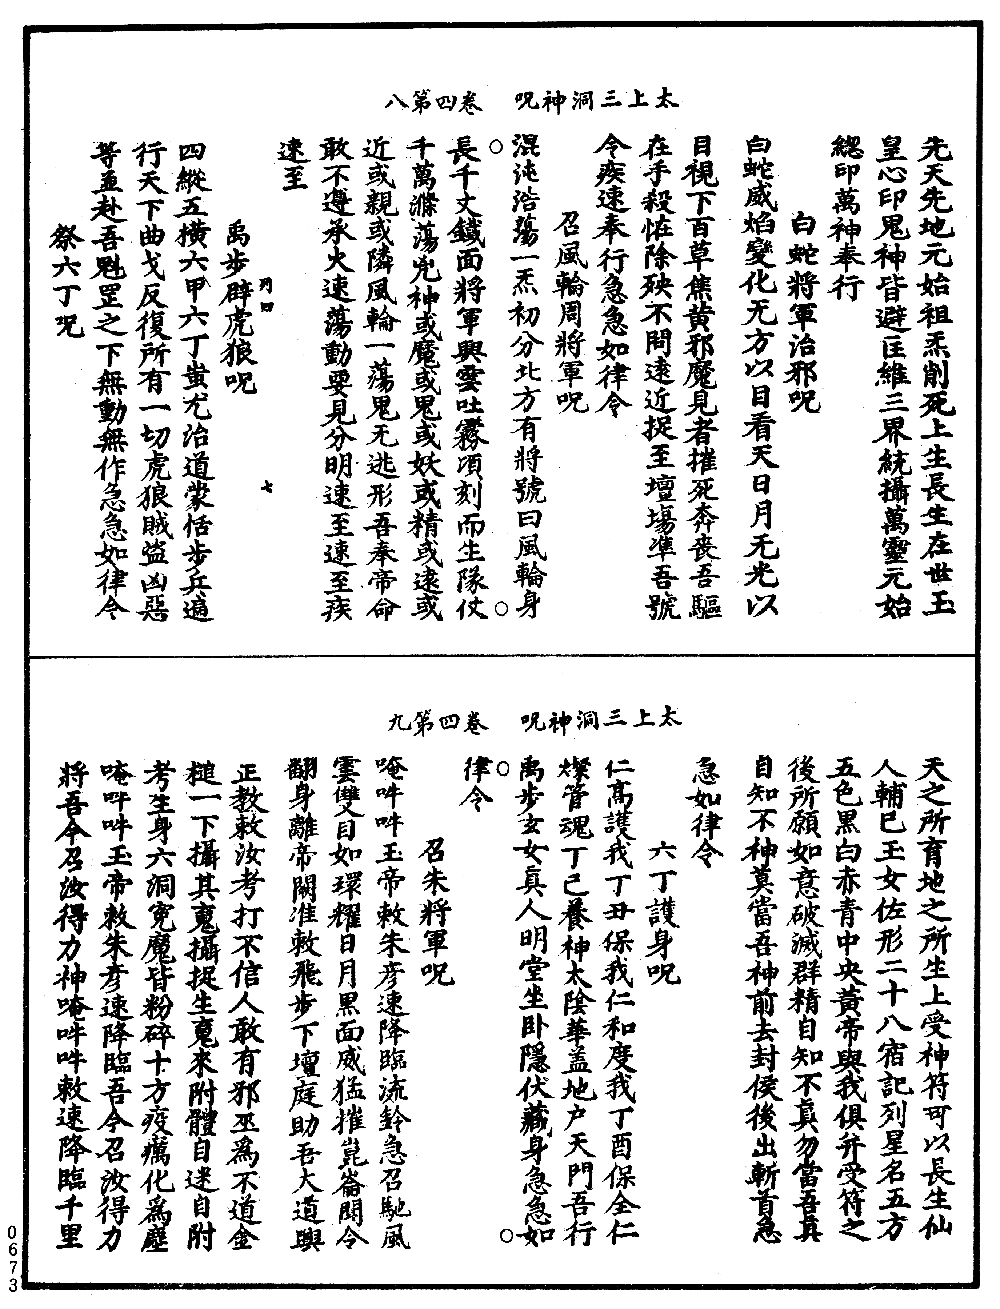 太上三洞神呪　卷四第八
先天先地元始祖炁削死上生長生在世玉
皇心印鬼神皆避匡維三界統攝萬靈元始
緫印萬神奉行
白蛇將軍治邪呪
白蛇威焰變化无方以目看天日月无光以
目視下百草焦黄邪魔見者摧死奔喪吾驅
在手殺恠除殃不問遠近捉至壇場準吾號
令疾速奉行急急如律令
召風輪周將軍呪
混沌浩蕩一炁初分北方有將號曰風輪身
長千丈鐵面將軍興雲吐霧項刻而生隊仗
千萬滌蕩兇神或魔或鬼或妖或精或遠或
近或親或隣風輪一蕩鬼无逃形吾奉帝命
敢不遵承火速蕩動要見分明速至速至疾
速至
禹步辟虎狼呪
四縱五橫六甲六丁蚩尤治道蒙恬步兵遍
行天下曲戈反復所有一切虎狼賊盜凶惡
等並赴吾魁罡之下無動無作急急如律令
祭六丁呪
七
太上三洞神呪　卷四第九
天之所育地之所生上受神符可以長生仙
人輔巳玉女佐形二十八宿記列星名五方
五色黑白赤青中央黃帝與我俱并受符之
後所願如意破滅群精自知不真勿當吾真
自知不神莫當吾神前去封侯後出斬首急
急如律令
六丁護身呪
仁高護我丁丑保我仁和度我丁酉保全仁
燦管魂丁巳養神太陰華盖地户天門吾行
禹步玄女真人明堂坐卧隱伏藏身急急如
律令
召朱將軍呪
唵吽吽玉帝敕朱彦速降臨流鈴急召馳風
雲雙目如環耀日月黑面威猛摧崑崙聞令
翻身離帝闕准敕飛步下壇庭助吾大道興
正教敕汝考打不信人敢有邪巫爲不道金
槌一下攝其䰟攝捉生䰟來附體自迷自附
考生身六洞寃魔皆粉碎十方疫癘化爲塵
唵吽吽玉帝敕朱彦速降臨吾今召汝得力
將吾今召汝得力神唵吽吽敕速降臨千里
0673